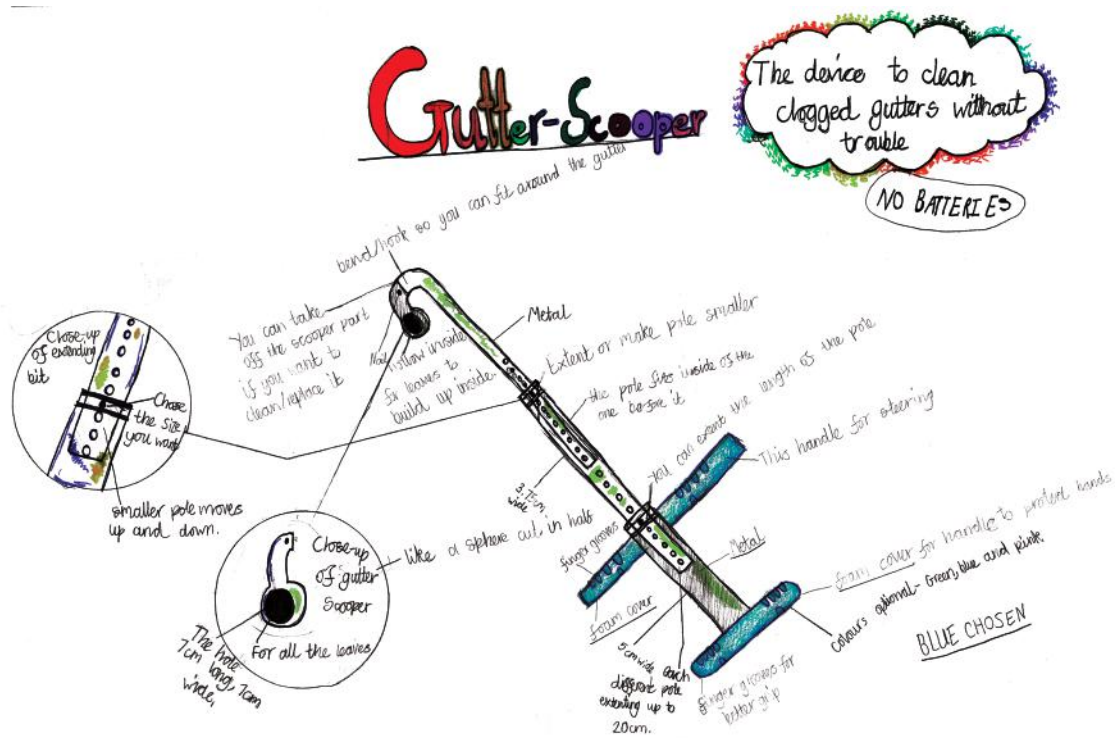 Gutter-Scooper
The device to clean
clogged gutters without
trouble
NO BATTERIES
bend/hook so you can fit around the gutter
You can take
off the scooper part
if you want to
clean/replace it
Nail
Hollow inside
for leaves to
build up inside.
Metal
Extent or make pole smaller
the pole fits inside of the
one before it
3.75cm
wide
You can extent the length of the pole
This handle for steering
Close-up
of extending
bit
Chose
the size
you want
smaller pole moves
up and down.
Close-up
of gutter
Scooper
like a sphere cut in half
For all the leaves
The hole
7cm long, 7cm
wide,
finger grooves
foam cover
Metal
5cm wide
each
different pole
extenting up to
20cm.
finger grooves for
better grip
foam cover for handle to protect hands
colours optional- Green, blue and pink
BLUE CHOSEN